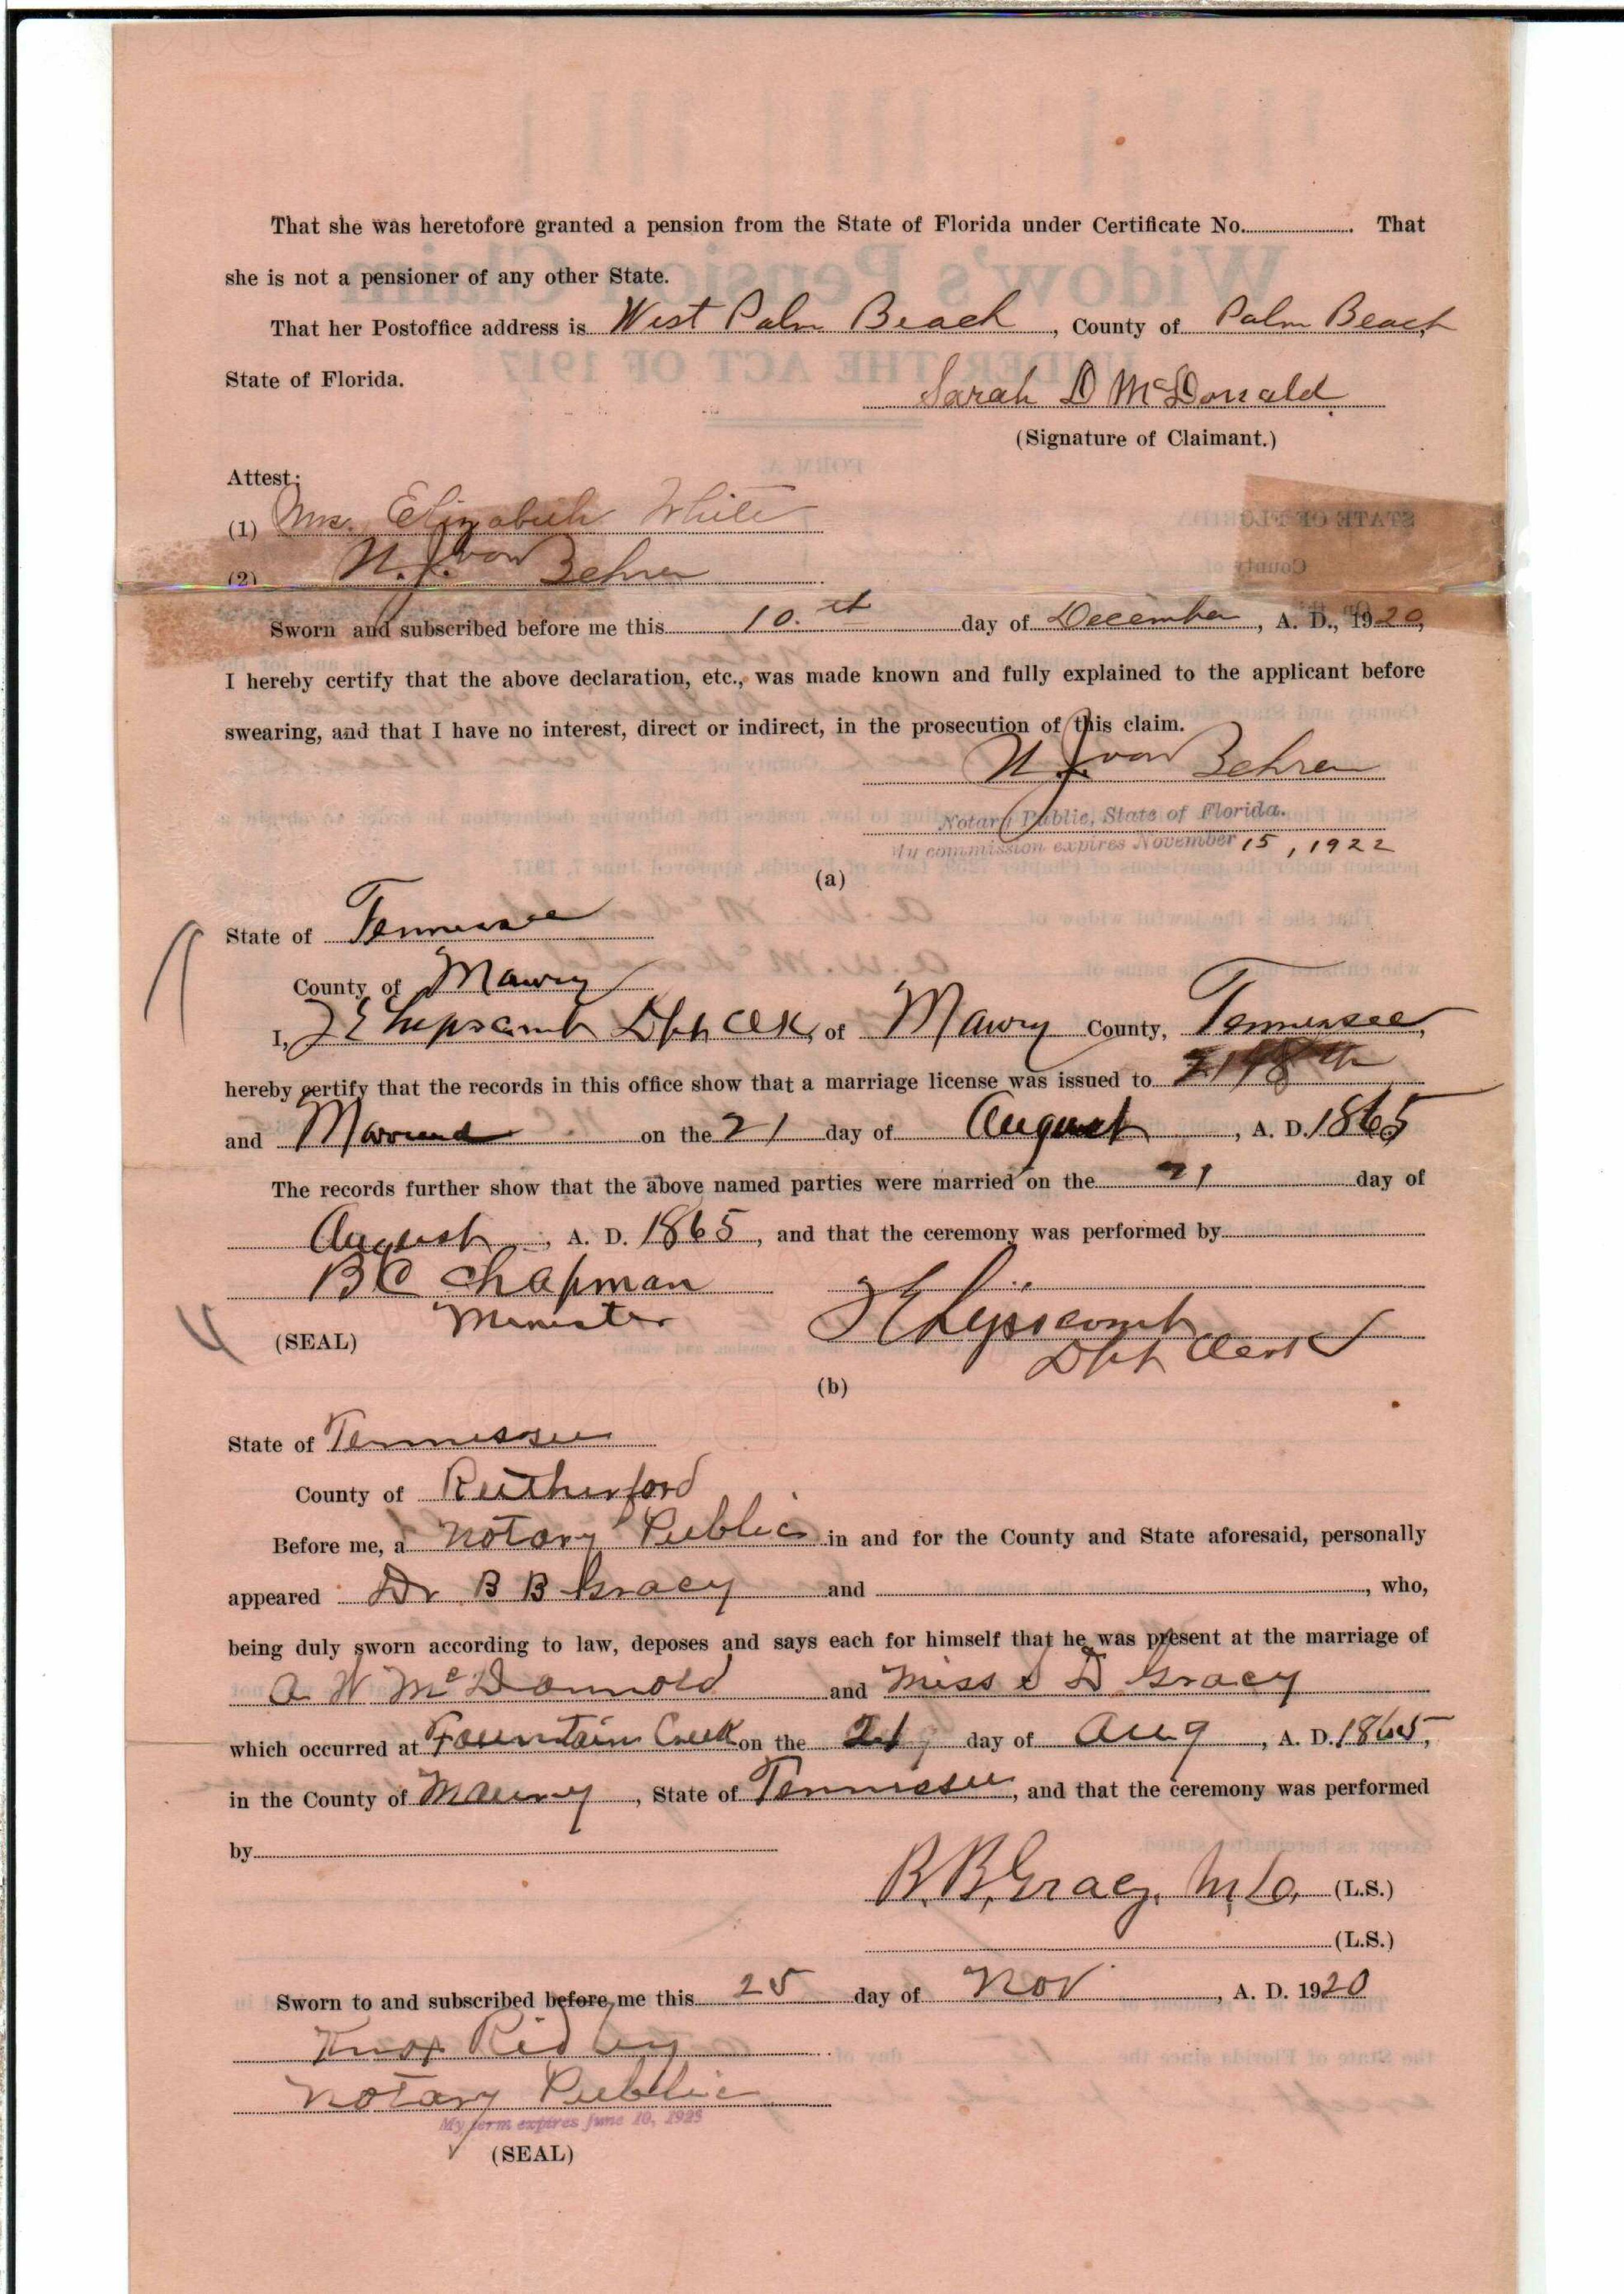 That she was heretofore granted a pension from the State of Florida under Certificate No. That
she is not a pensioner of any other State.
That her Postoffice address is West Palm Beach, County of Palm Beach,
State of Florida.
Sarah D McDonald
(Signature of Claimant.)
Attest:
(1) Mrs. Elizabeth White
(2) N. J. von Behren
Sworn and subscribed before me this 10.th day of December, A. D., 1920,
I hereby certify that the above declaration, etc., was made known and fully explained to the applicant before
swearing, and that I have no interest, direct or indirect, in the prosecution of this claim.
N J. von Behren
Notary Public, State of Florida.
My commission expires November 15, 1922
(a)
State of Tennessee
County of Maury
I, J E Lipscomb Dpt Clk, of Maury County, Tennessee,
hereby certify that the records in this office show that a marriage license was issued to
and Married on the 21 day of August, A. D. 1865
The records further show that the above named parties were married on the 21 day of
August, A. D. 1865, and that the ceremony was performed by
B C Chapman
Minister
J E Lipscomb
(SEAL)
Dpt Clerk
(b)
State of Tennessee
County of Rutherford
Before me, a Notary Public in and for the County and State aforesaid, personally
appeared Dr B B Gracy and , who,
being duly sworn according to law, deposes and says each for himself that he was present at the marriage of
A W McDonnold and Miss S D Gracy
which occurred at Fountain Creek on the 21 day of Aug, A. D. 1865,
in the County of Maury, State of Tennessee, and that the ceremony was performed
by
B. B. Gracy, M.D. (L.S.)
(L.S.)
Sworn to and subscribed before me this 25 day of Nov, A. D. 1920
Knox Ridley
Notary Public
My term expires June 10, 1923
(SEAL)